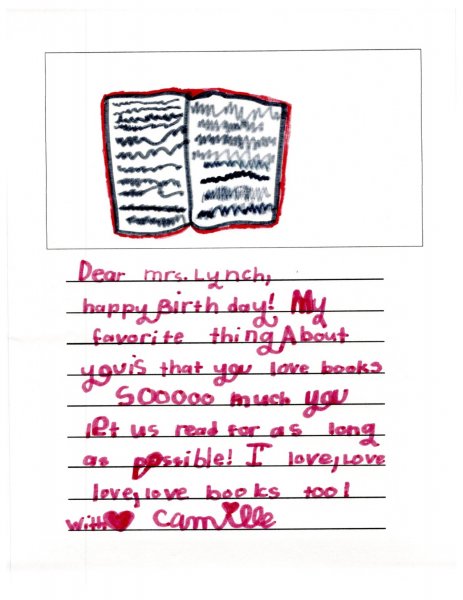 Dear mrs. Lynch,
happy Birth day! My
favorite thing About
you is that you love books
SOOOOO much you
let us read for as long
as possible! I love, love
love, love books too!
With ♥ Camille